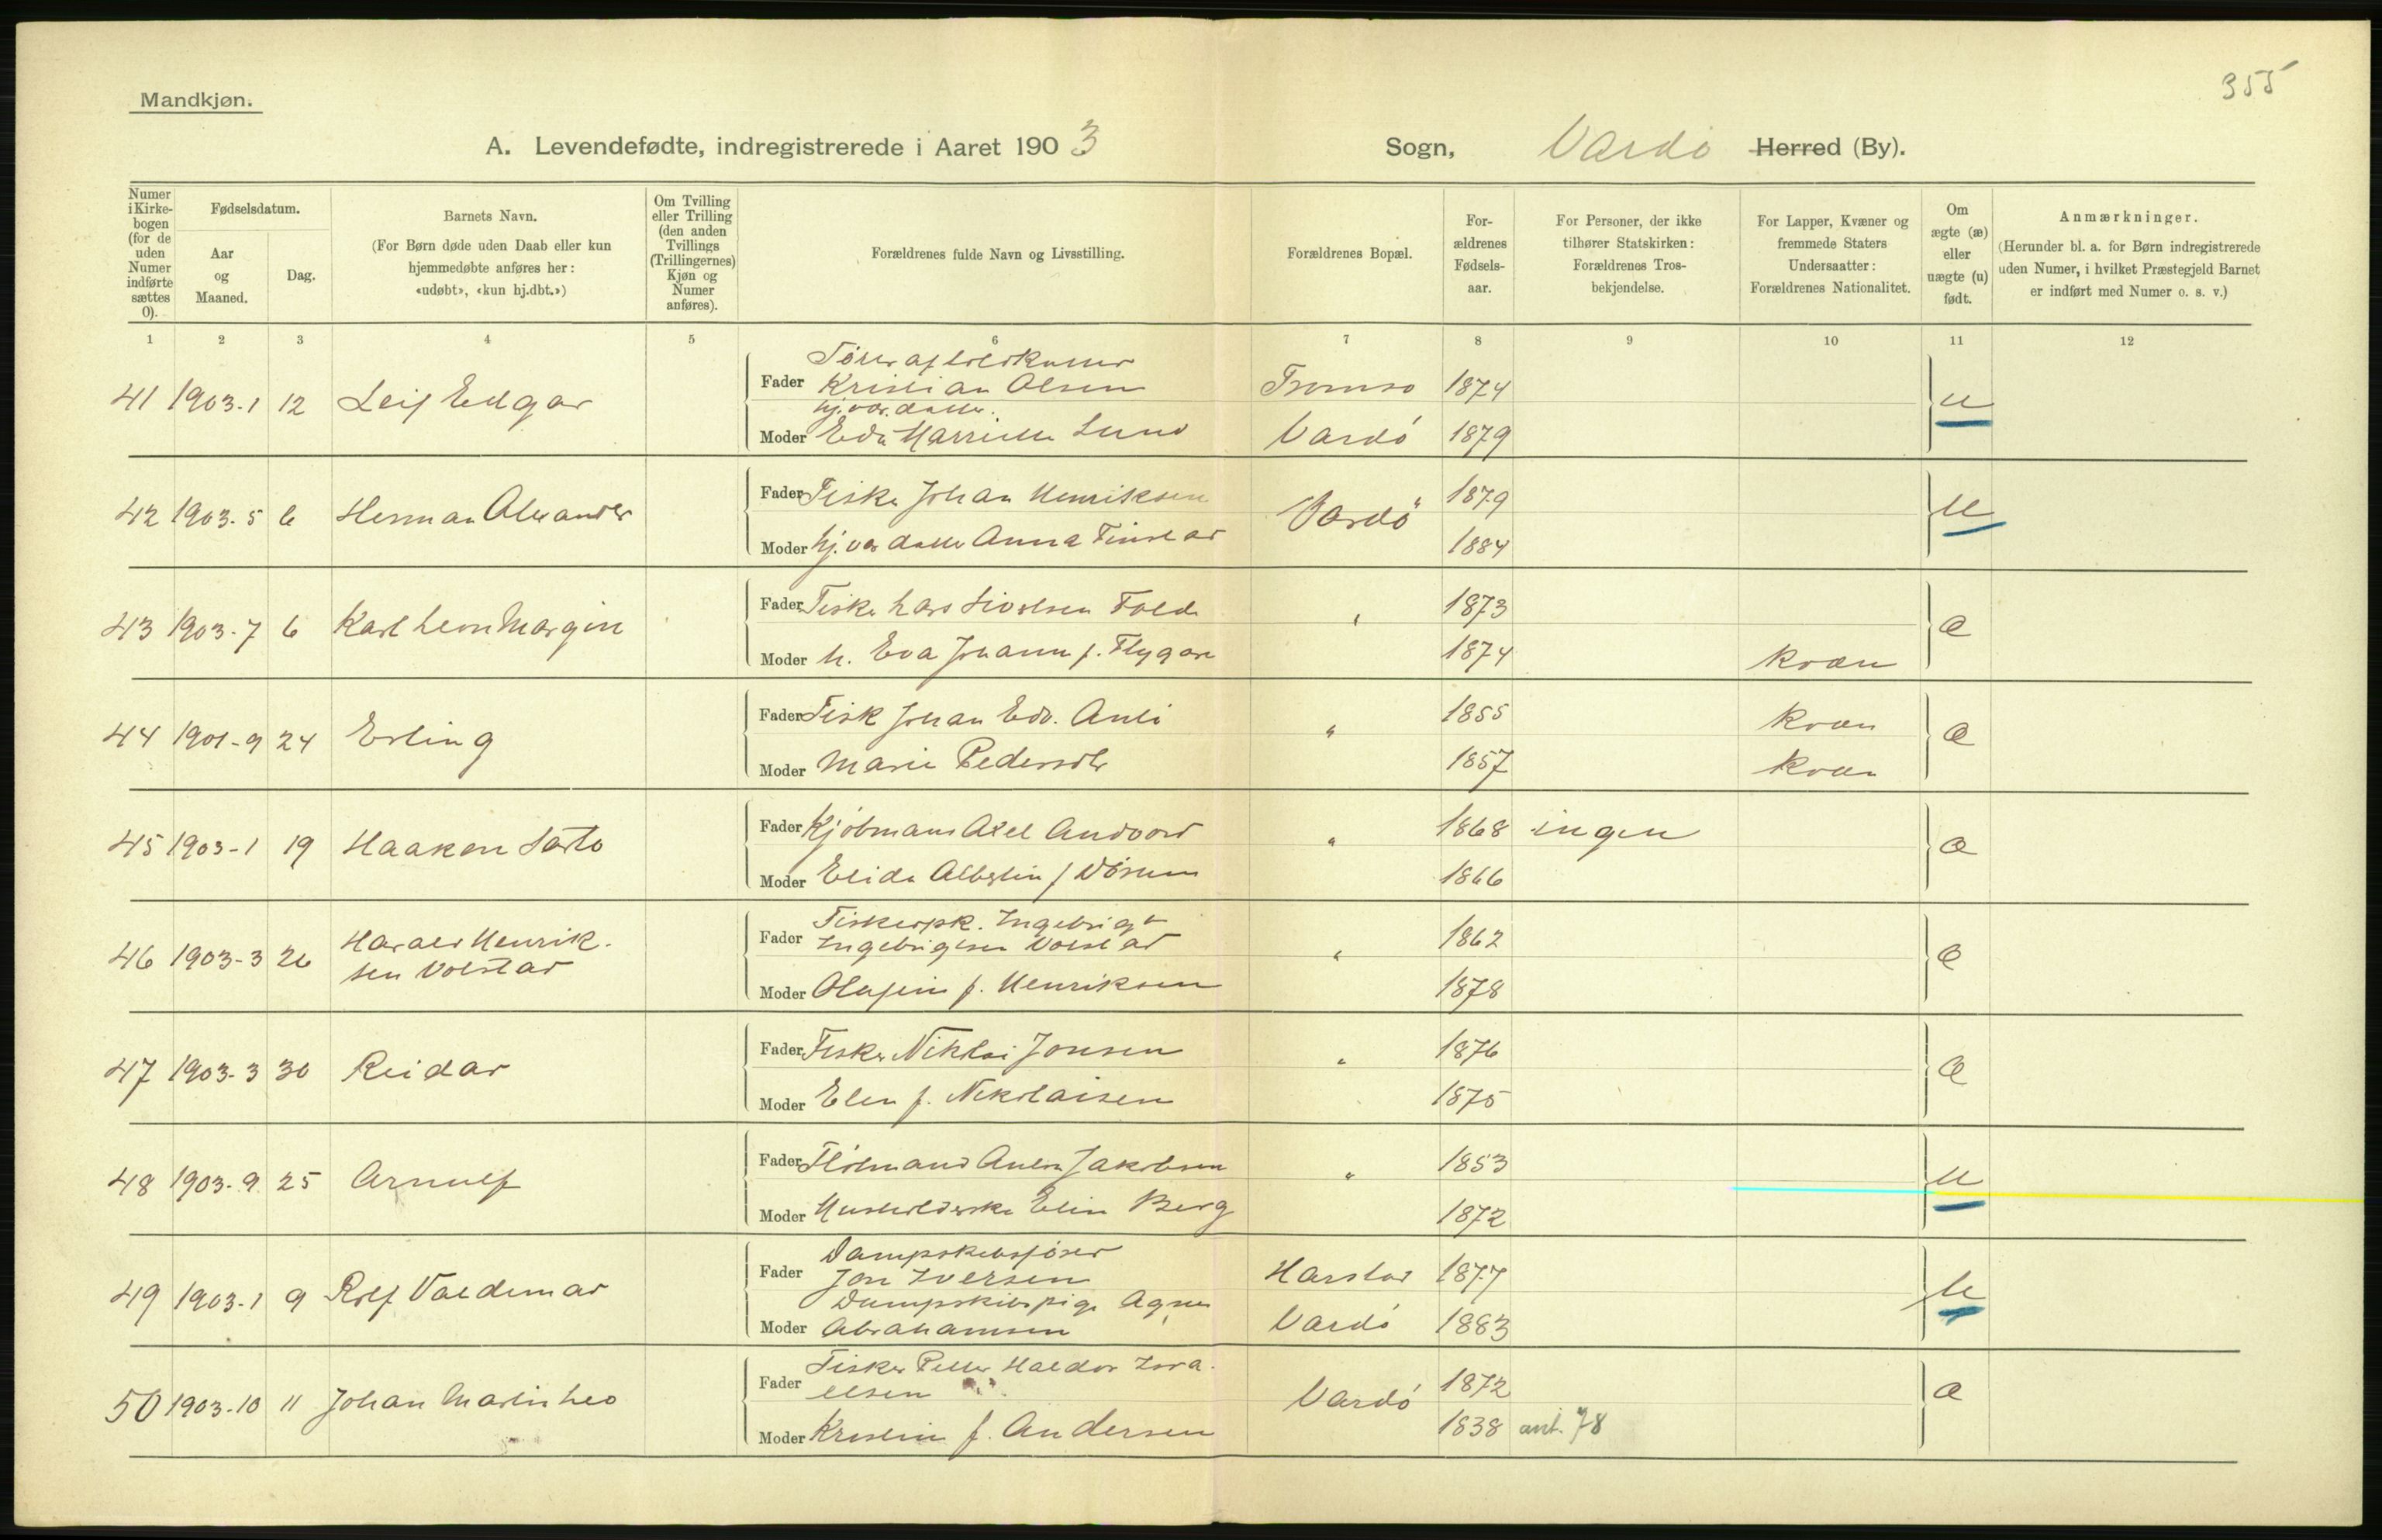 355
Mandkjøn.
A. Levendefødte, indregistrerede i Aaret 1903 Sogn, Vardø Herred (By).
Numer i Kirkebogen (for de uden Numer indførte sættes 0).
Fødselsdatum.
Aar og Maaned.
Dag.
Barnets Navn.
(For Børn døde uden Daab eller kun hjemmedøbte anføres her: «udøbt», «kun hj.dbt.»)
Om Tvilling eller Trilling (den anden Tvillings (Trillingernes) Kjøn og Numer anføres).
Forældrenes fulde Navn og Livsstilling.
Forældrenes Bopæl.
Forældrenes Fødselsaar.
For Personer, der ikke tilhører Statskirken: Forældrenes Trosbekjendelse.
For Lapper, Kvæner og fremmede Staters Undersaatter: Forældrenes Nationalitet.
Om ægte (æ) eller uægte (u) født.
Anmærkninger.
(Herunder bl. a. for Børn indregistrerede uden Numer, i hvilket Præstegjeld Barnet er indført med Numer o. s. v.)
1 2 3 4 5 6 7 8 9 10 11 12
41 1903-1 12 Leif Edgar
Fader Kristian Olsen Tromsø 1874 u
Moder Lund Vardø 1879
42 1903-5 6 Herman Alexander
Fader Fisker Johan Henriksen Vardø 1879 u
Moder Anna 1884
43 1903-7 6 Karl
Fader Fisker Lars " 1873 æ
Moder h. Eva f. 1874 Kvæn
44 1901-9 24 Erling
Fader Fisk Johan Edv. " 1855 Kvæn æ
Moder Marie Pedersdtr 1857 Kvæn
45 1903-1 19 Haakon
Fader Kjøbmand Axel " 1868 ingen æ
Moder Elida 1866
46 1903-3 26 Harald Henrik-
sen Volstad
Fader Ingebrigt
Ingebrigtsen Volstad " 1862 æ
Moder f. Henriksen 1878
47 1903-3 30 Reidar
Fader Fisker Nikolai Jonsen " 1876 æ
Moder Elen f. Nikolaisen 1875
48 1903-9 25 Arnulf
Fader Jakobsen " 1853 u
Moder Husholderske Elin Berg 1872
49 1903-1 9 Rolf Valdemar
Fader Dampskibsfører
Jon Iversen Harstad 1877 u
Dampskibspige Agnes
Moder Abrahamsen Vardø 1883
50 1903-10 11 Johan Martin Leo
Fader Fisker Petter Haldor Isra-
elsen Vardø 1872 æ
Moder Kristin f. Andersen 1838 ant. 78